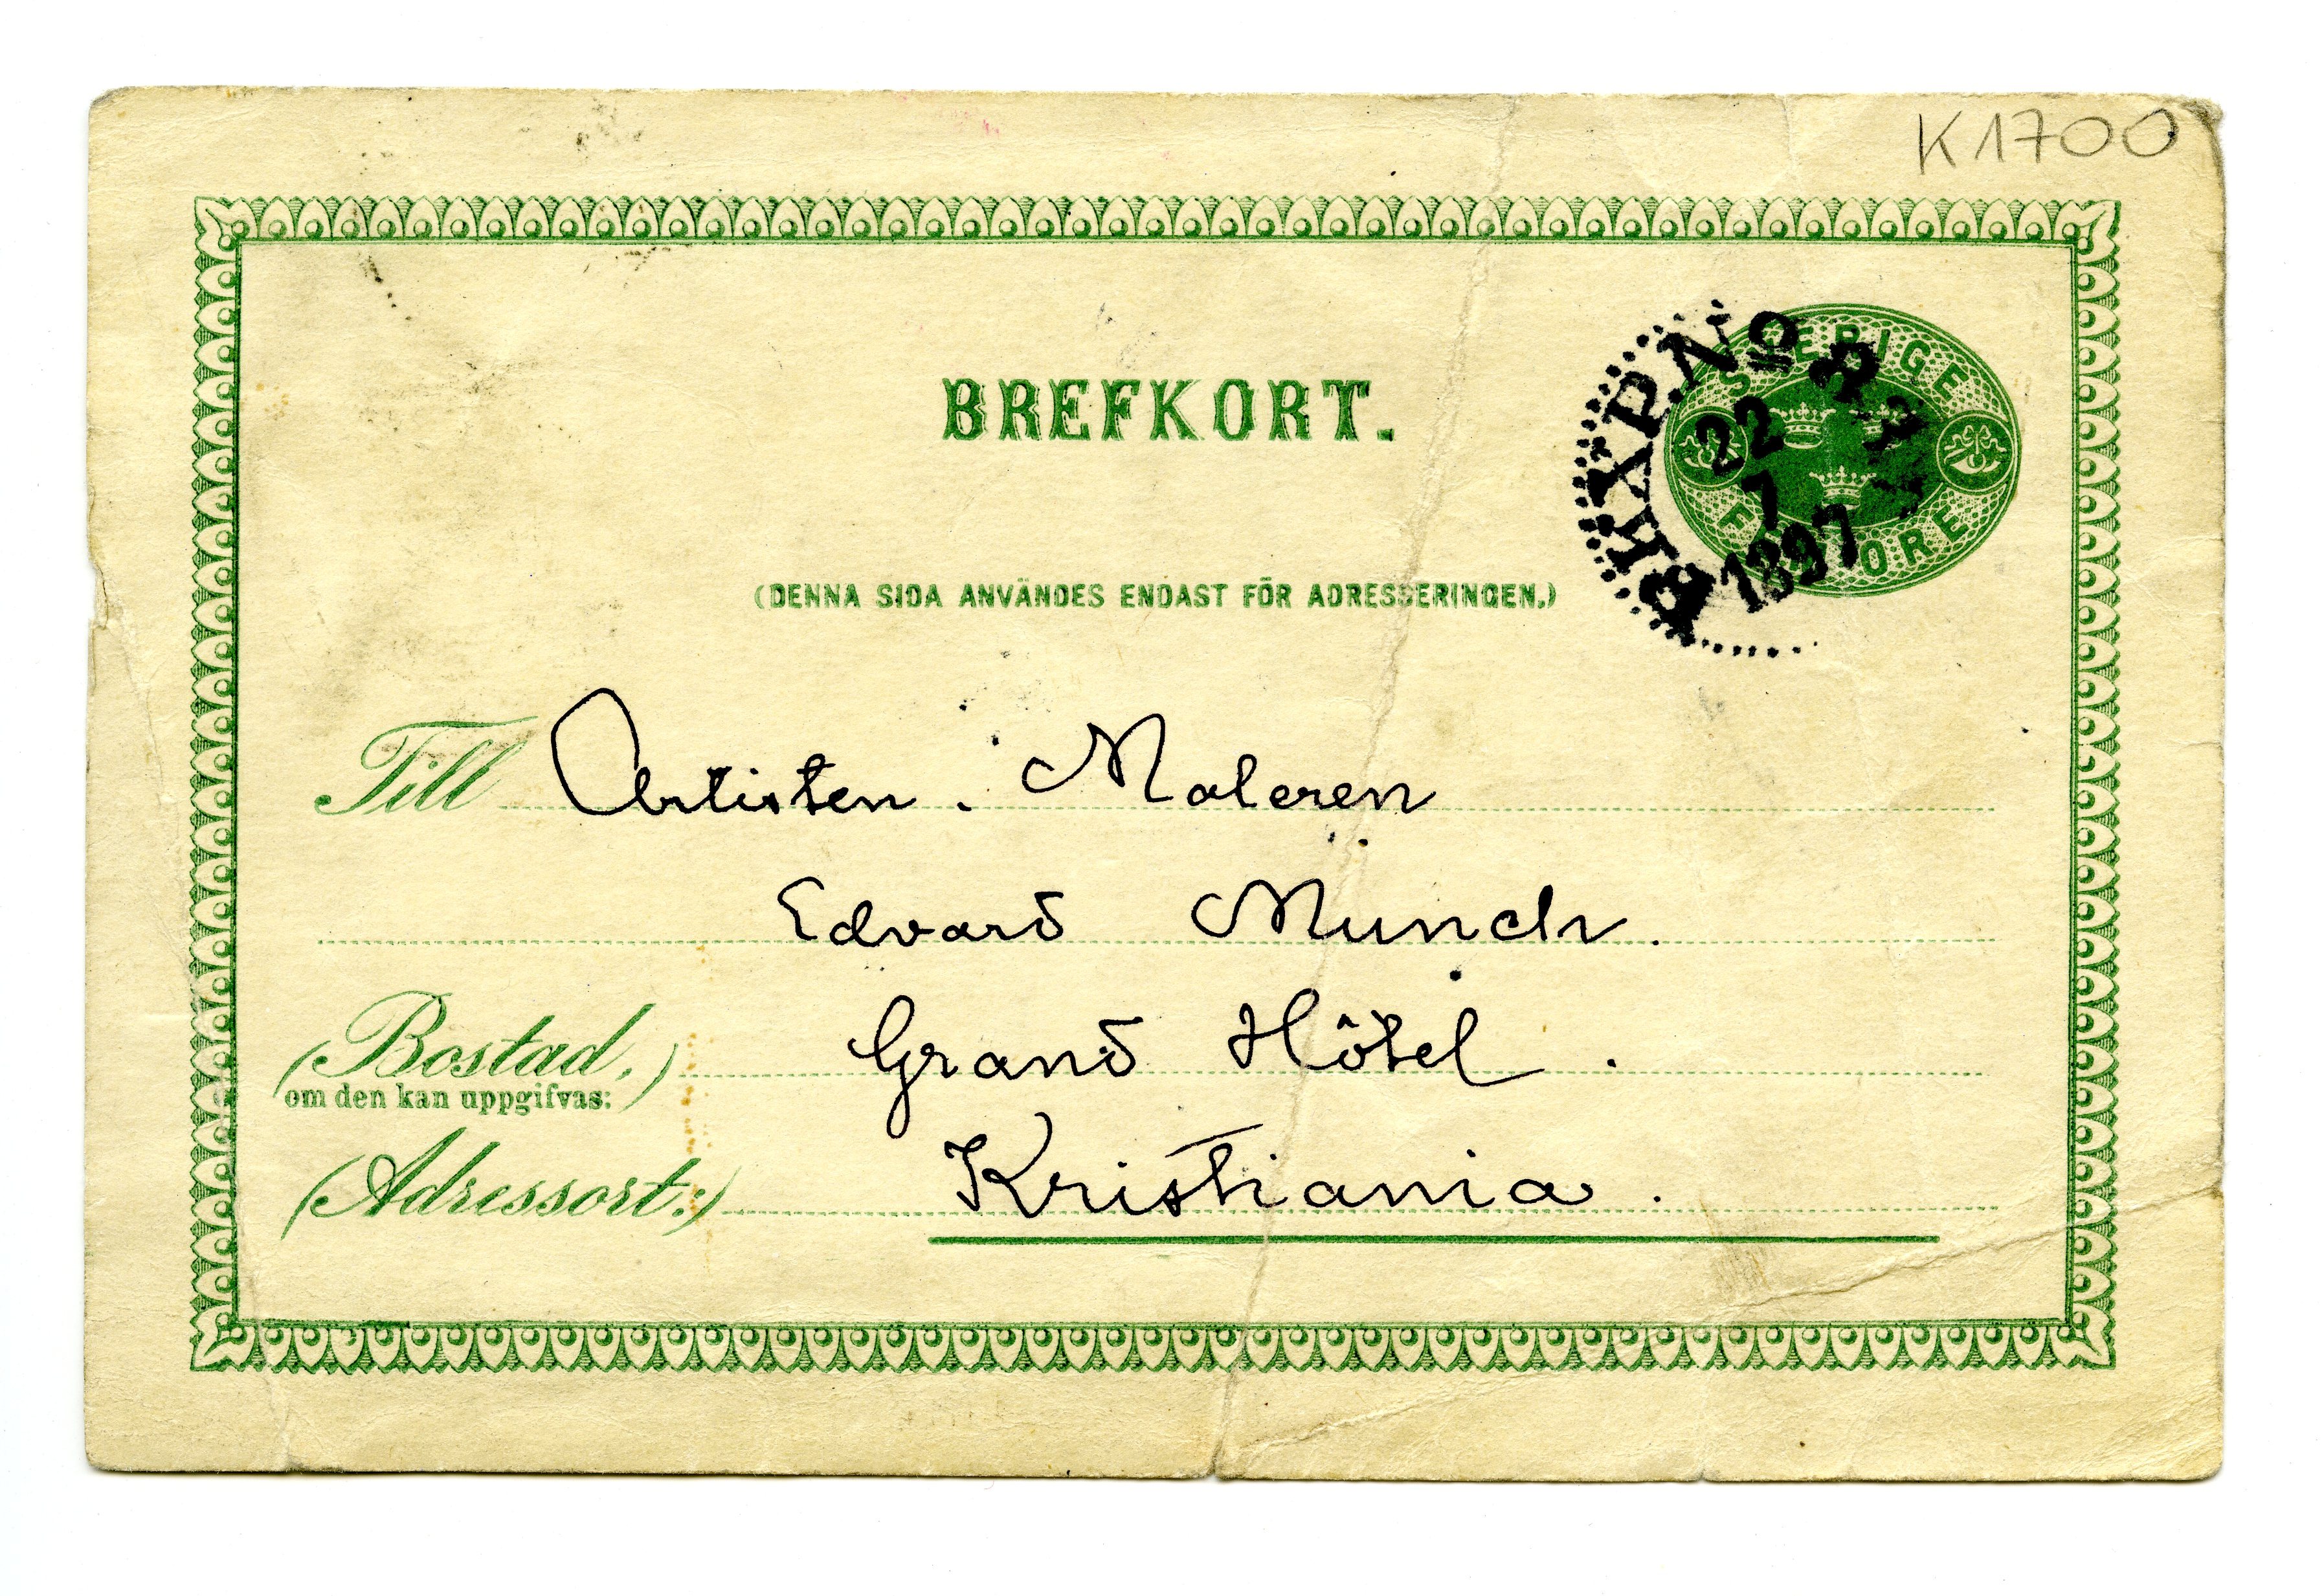 K1700
BREFKORT.
SVERIGE
FEM ÖRE
PKXP. No
22
7
1897
(DENNA SIDA ANVÄNDES ENDAST FÖR ADRESSERINGEN.)
Till Artisten. Maleren
Edvard Munch.
(Bostad,) Grand Hôtel.
om den kan uppgifvas:
(Adressort:) Kristiania.